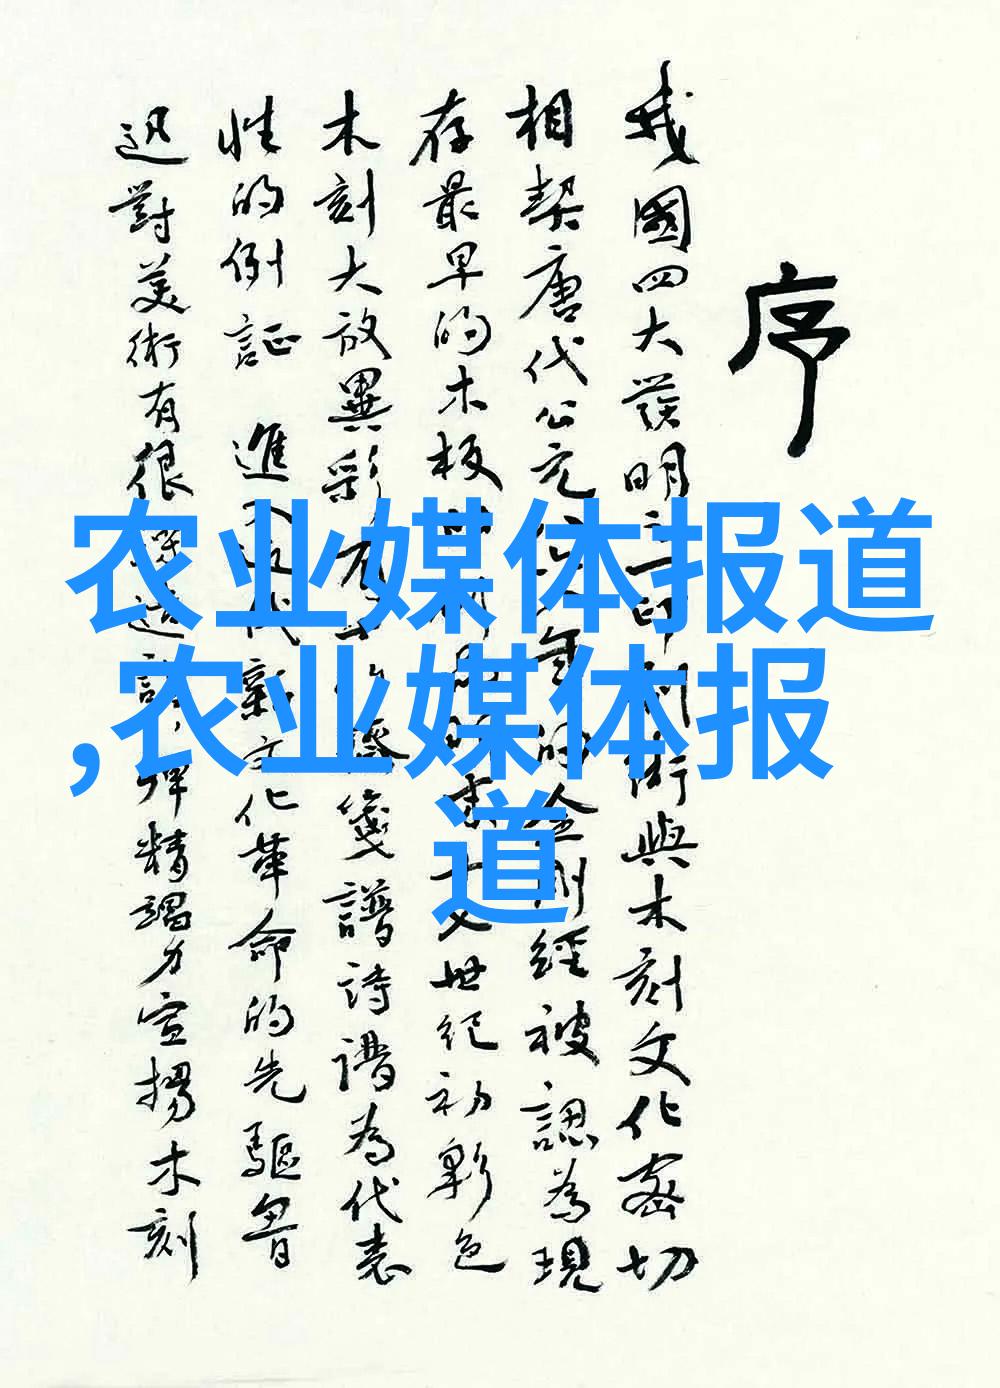 序
我國四大發明之一印刷術與木刻文化密切
相契唐代公元八六八年的金剛經被認為現
存最早的木板
世紀初彩色
木刻大放異彩
箋譜詩譜為代表
性的例証 進入近代新文化革命的先驅魯
迅對美術有很
精竭力宣揚木刻
农业媒体报道
,农业媒体报
道